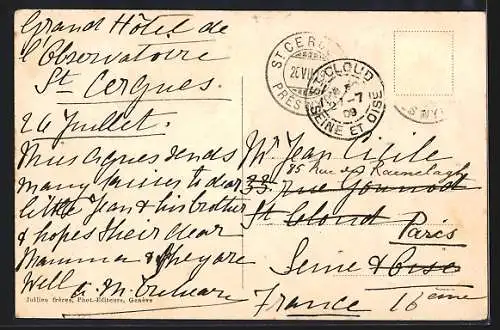 Grand Hôtel de
l'Observatoire
St. Cergues.
26 Juillet.
Miss Agnes sends
many kisses to dear
little Jean & his brother
& hopes their dear
Mamma & are
well
Jullien frères, Phot.-Editeurs, Genève
ST CERGUES
PRES
ST-CLOUD
7-7
09
SEINE ET OISE
Mr Jean
85 rue du Ranelagh
33 rue Gounod
St Cloud Paris
Seine & Oise
France 16ème